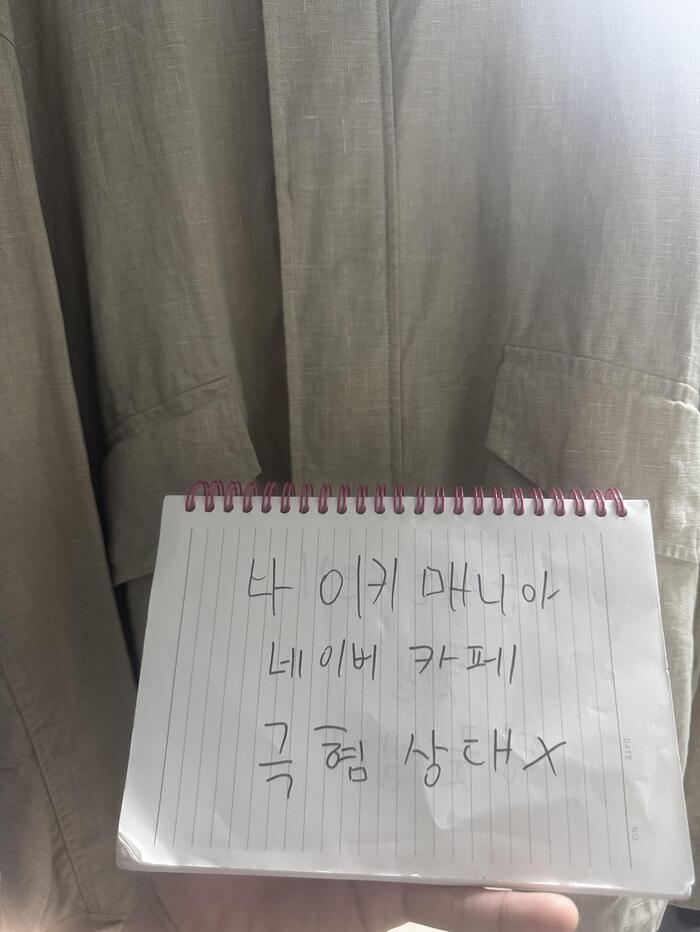 나 이키 매니아
네이버 카페
극 혐 상태X
DATE
NO.